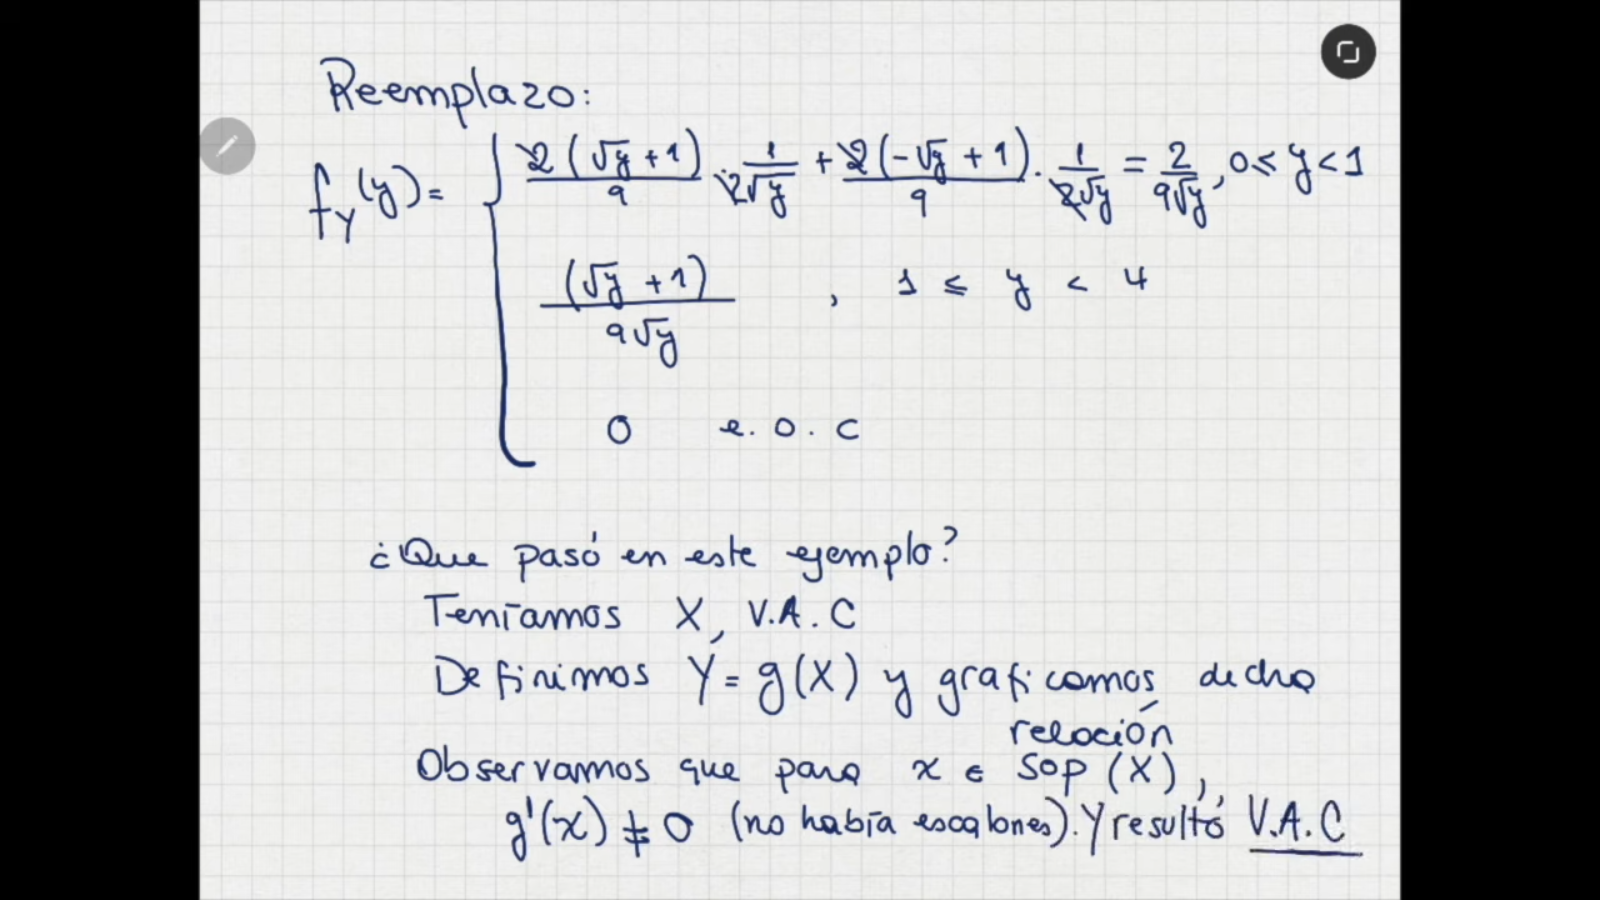 Reemplazo:
f_Y(y) = { 2(√y + 1)/9 · 1/(2√y) + 2(-√y + 1)/9 · 1/(2√y) = 2/(9√y), 0 ≤ y < 1
(√y + 1)/(9√y) , 1 ≤ y < 4
0 e.o.c
¿Que pasó en este ejemplo?
Teníamos X, V.A.C
Definimos Y = g(X) y graficamos dicha
relación
Observamos que para x ∈ Sop(X),
g'(x) ≠ 0 (no había escalones). Y resultó V.A.C